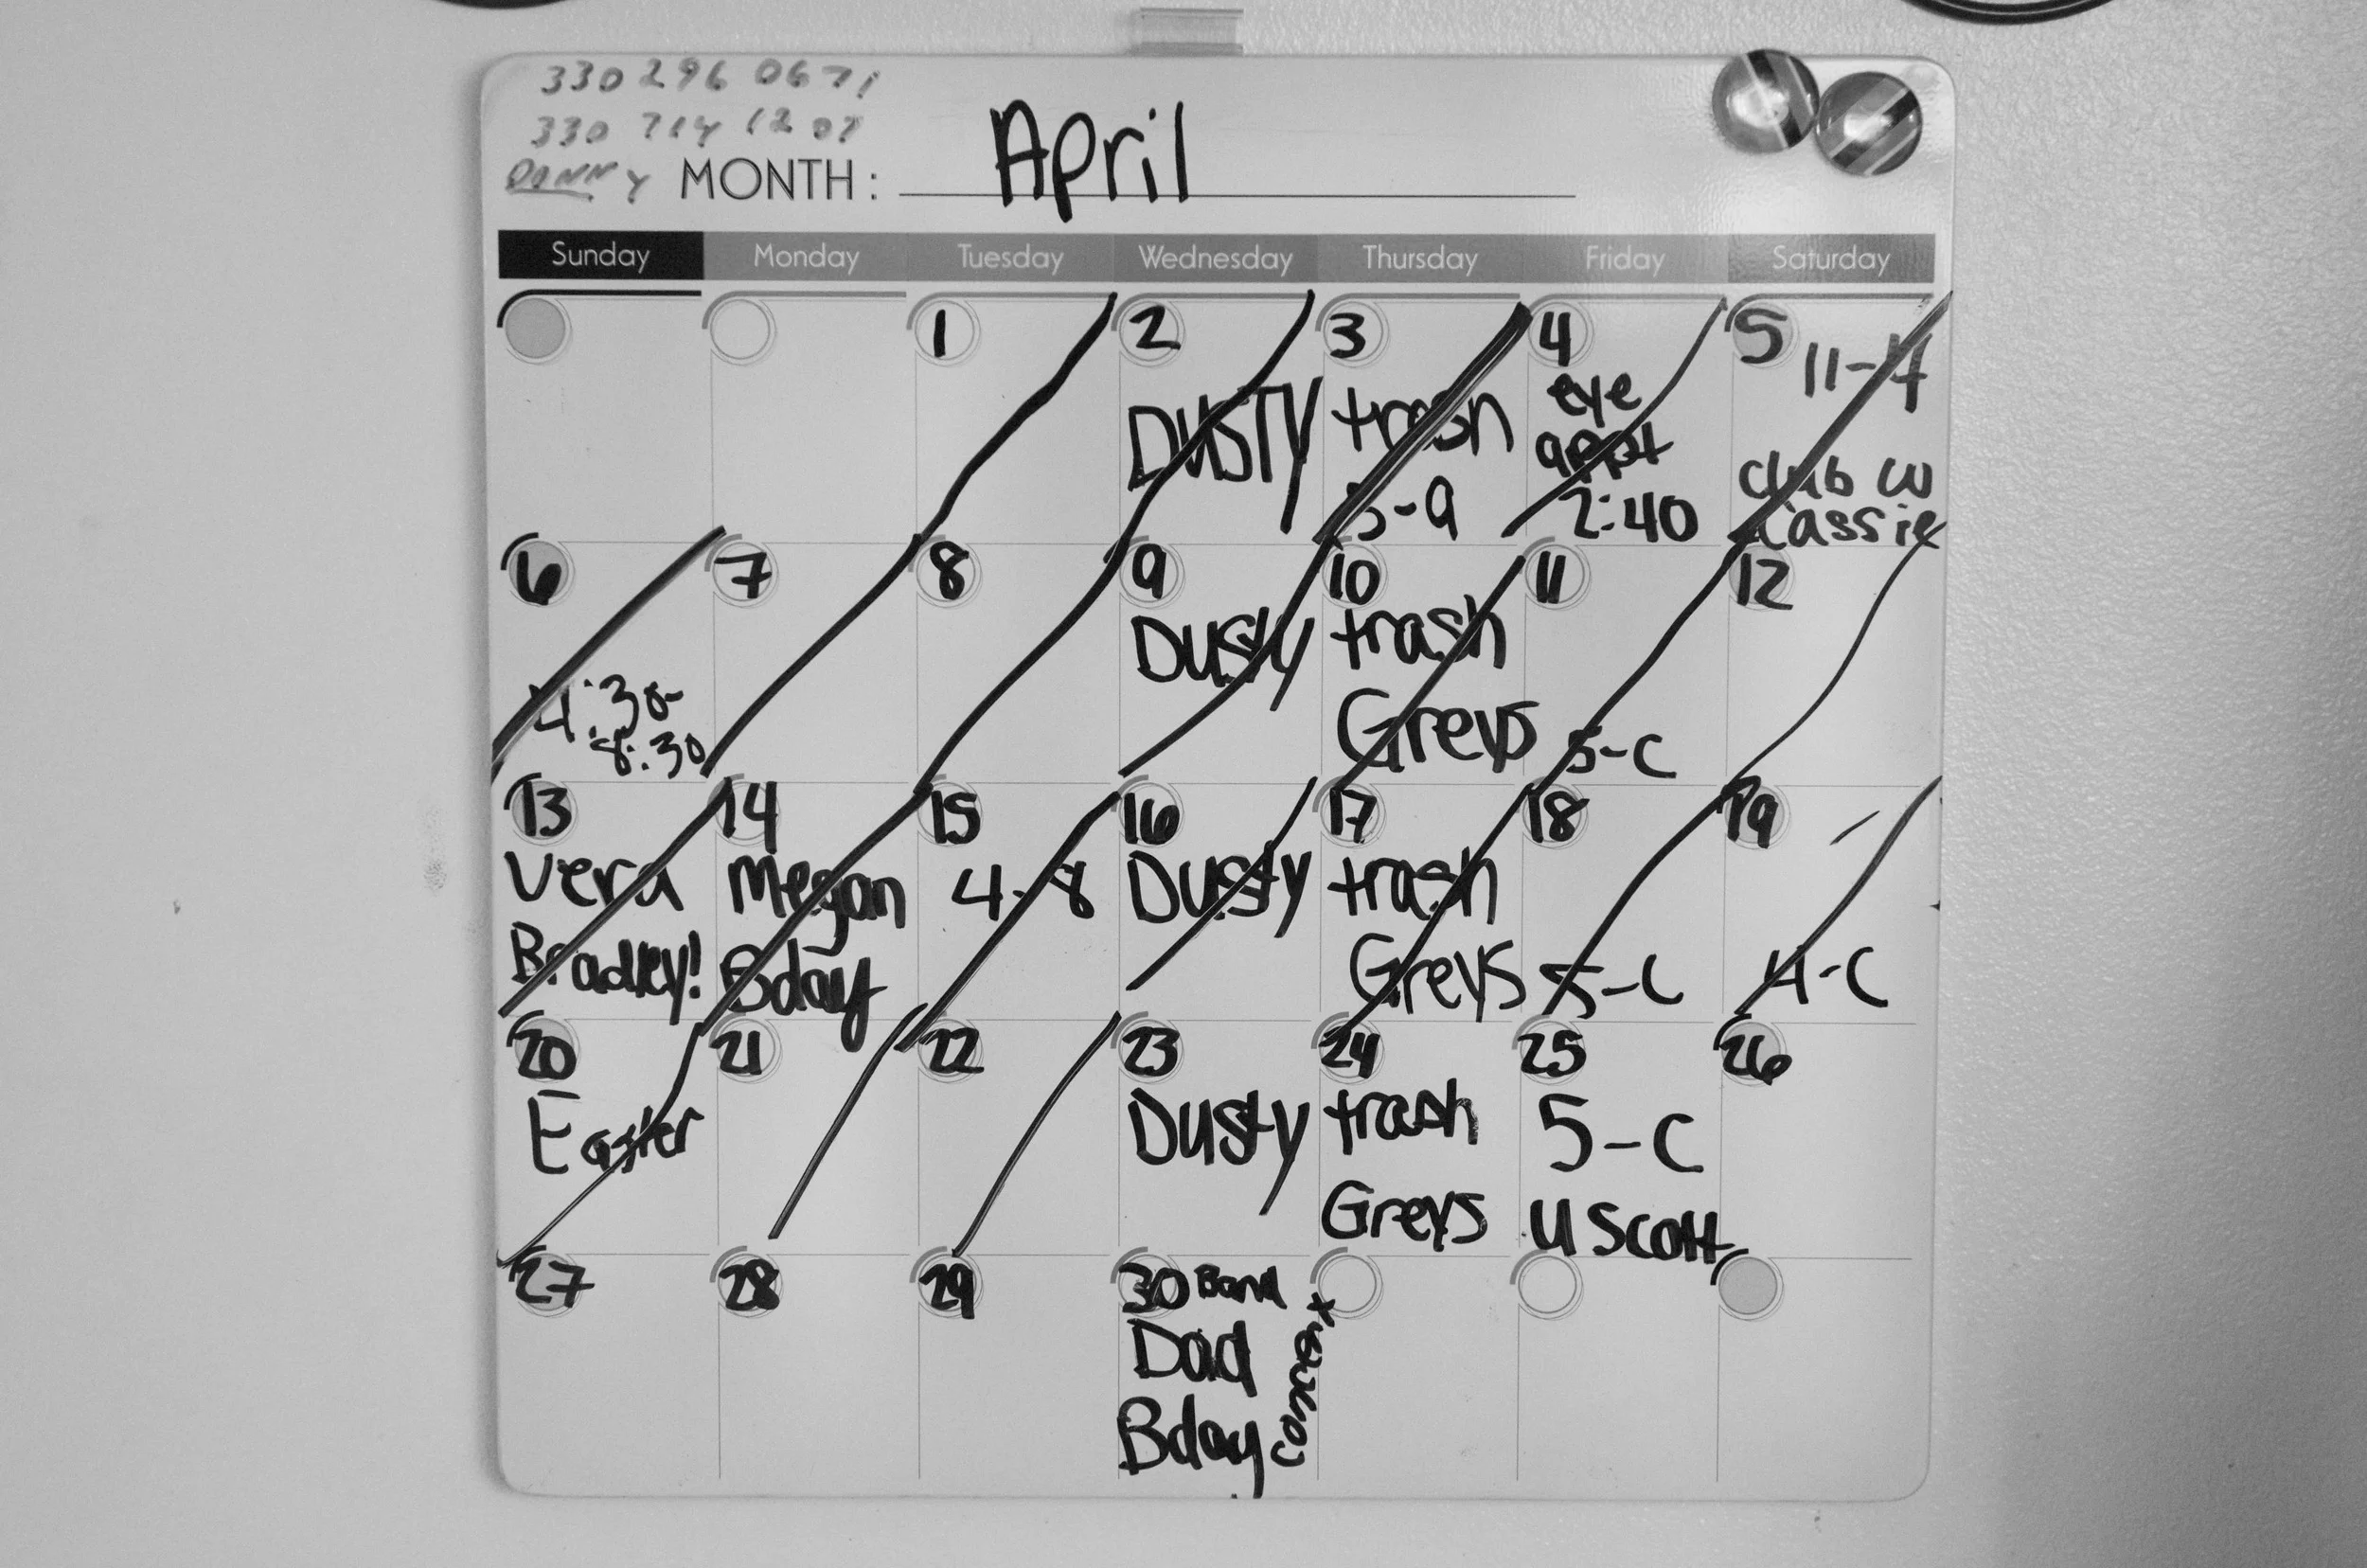 330 296 0671
330 714 1207
DANNY
MONTH: April
Sunday Monday Tuesday Wednesday Thursday Friday Saturday
1
2
DUSTY
3
trash
5-9
4
eye
appt
2:40
5
11-4
club w
Cassie
6
4:30-
8:30
7
8
9
Dusty
10
trash
Greys
11
5-C
12
13
Vera
Bradley!
14
Megan
Bday
15
4-8
16
Dusty
17
trash
Greys
18
5-C
19
4-C
20
Easter
21
22
23
Dusty
24
trash
Greys
25
5-C
U Scott
26
27
28
29
30 Band
concert
Dad
Bday